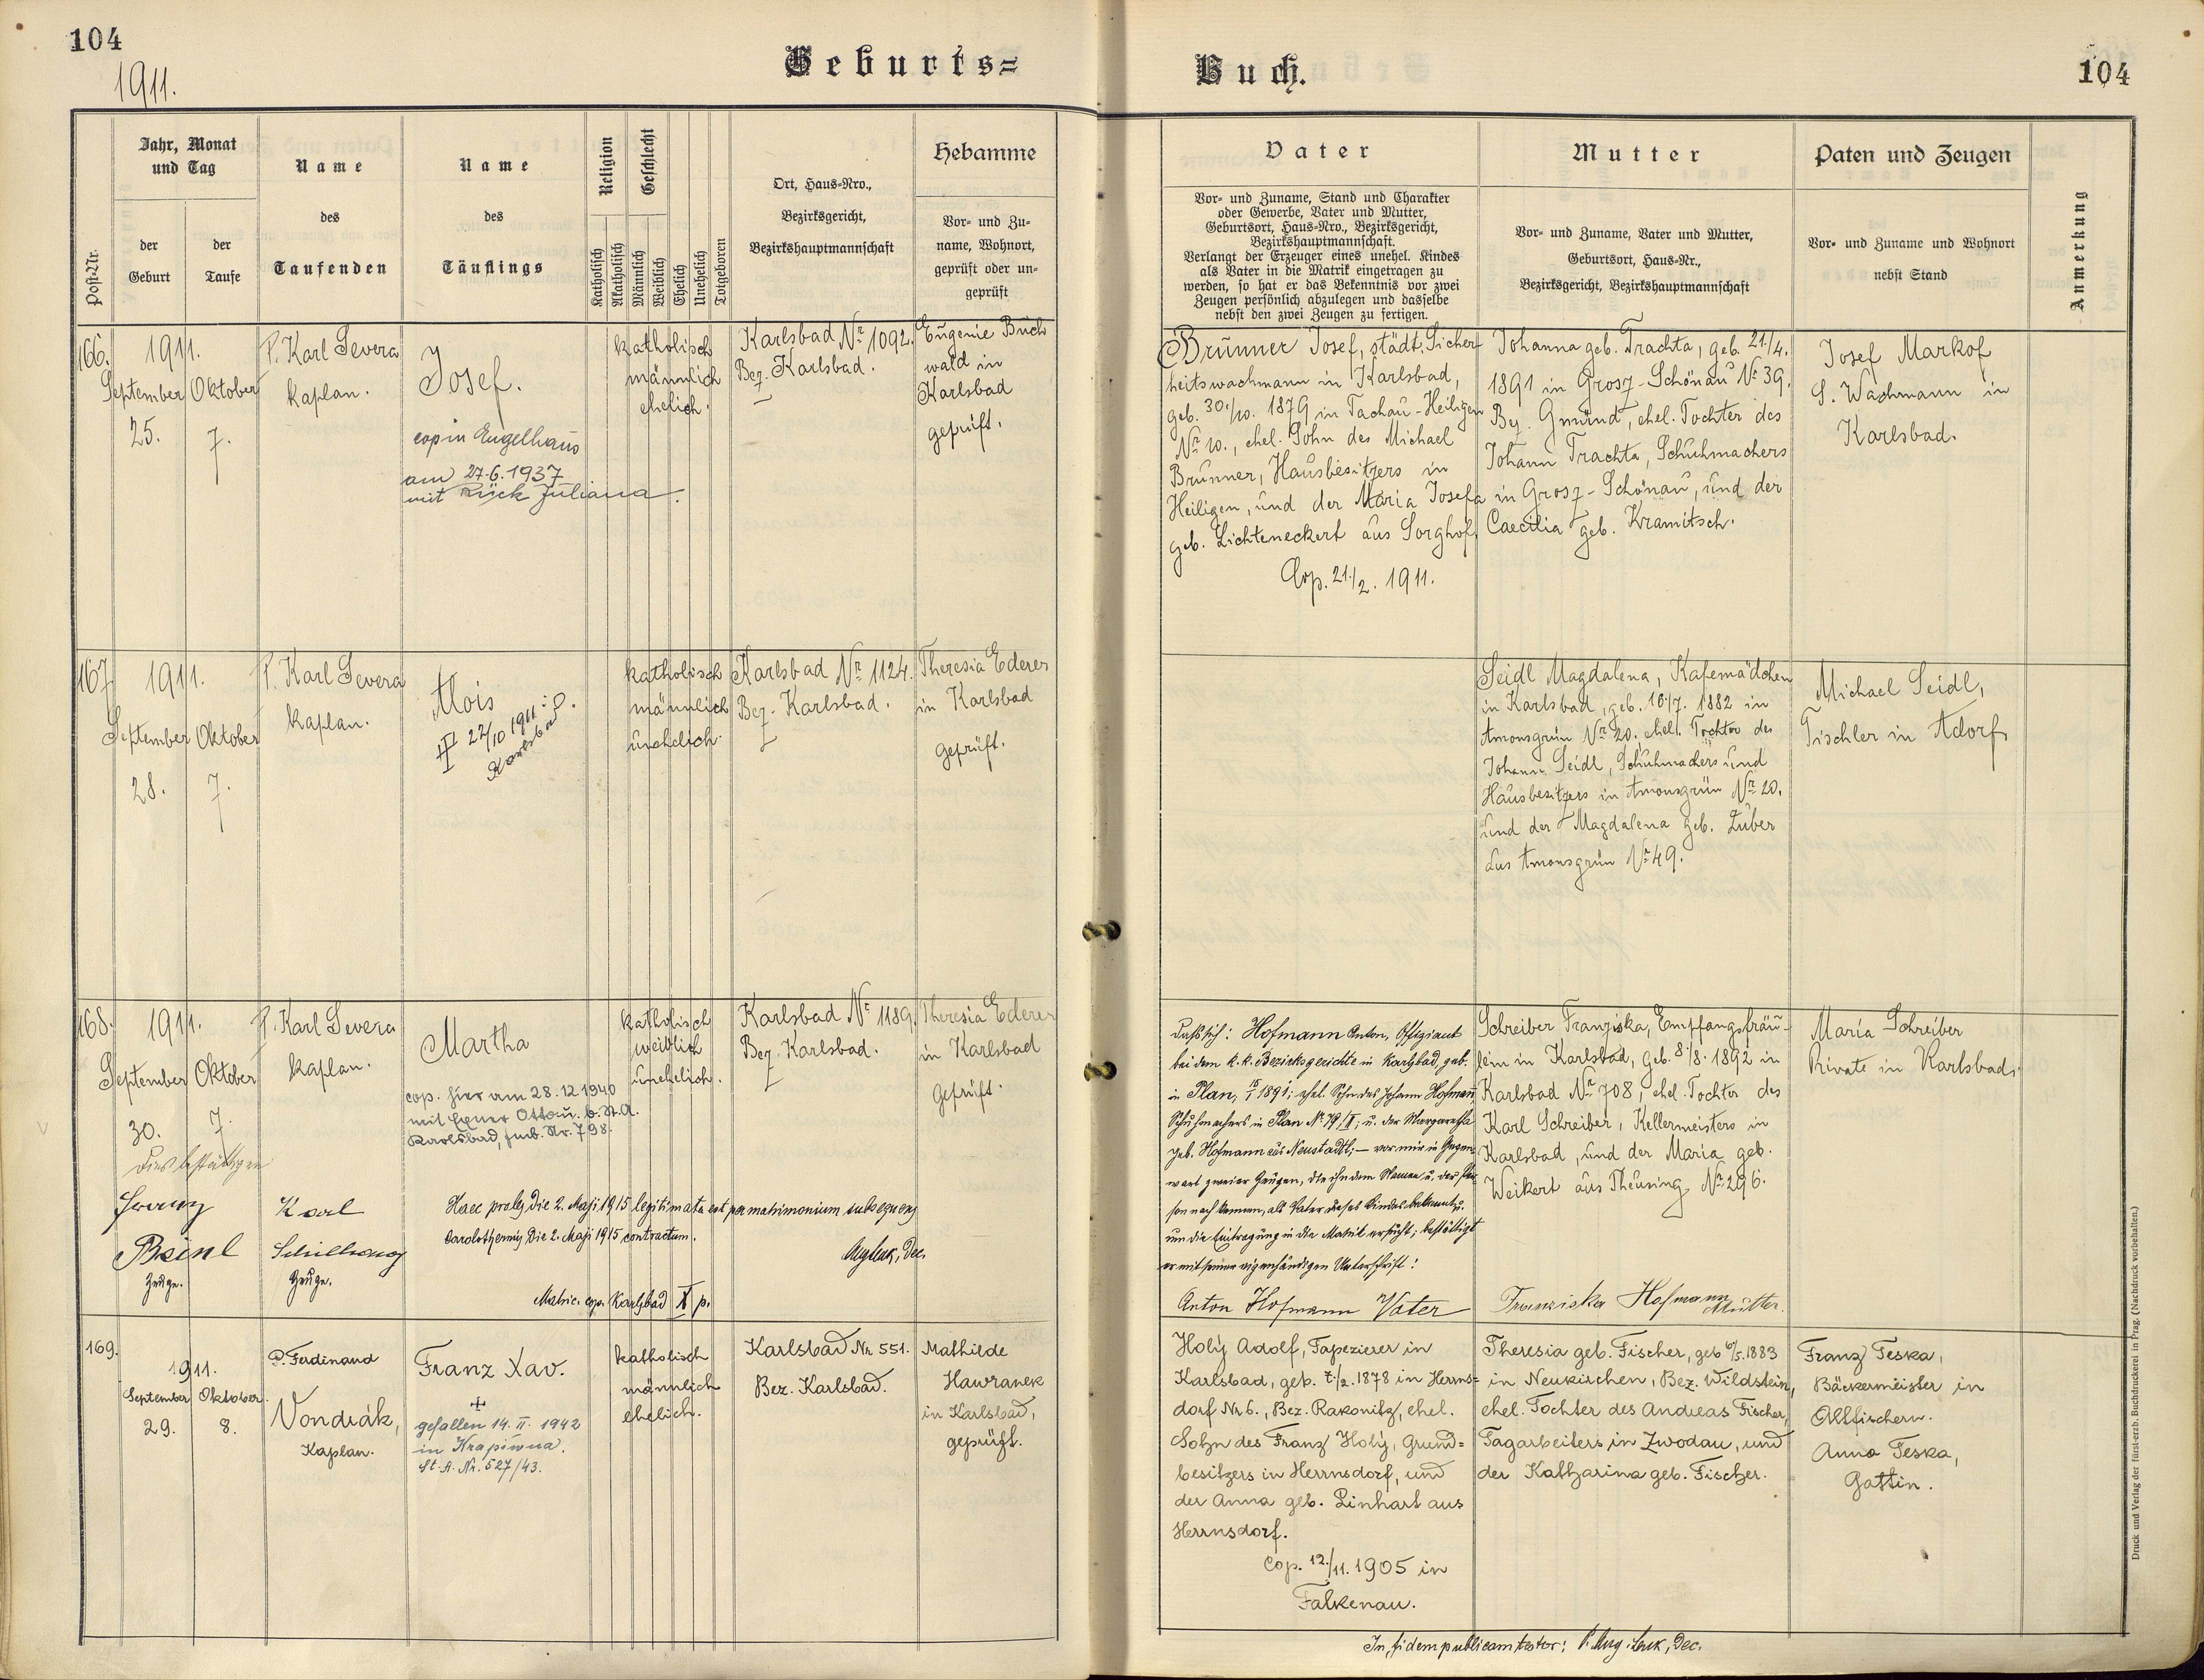 104
1911.
Geburts=
Buch.
104
Post-Nr.
Jahr, Monat
und Tag
der
Geburt
der
Taufe
Name
des
Taufenden
Name
des
Täuflings
Religion
Katholisch
Akatholisch
Geschlecht
Männlich
Weiblich
Ehelich
Unehelich
Totgeboren
Ort, Haus=Nro.,
Bezirksgericht,
Bezirkshauptmannschaft
Hebamme
Vor= und Zu=
name, Wohnort,
geprüft oder un=
geprüft
Vater
Vor= und Zuname, Stand und Charakter
oder Gewerbe, Vater und Mutter,
Geburtsort, Haus=Nro., Bezirksgericht,
Bezirkshauptmannschaft.
Verlangt der Erzeuger eines unehel. Kindes
als Vater in die Matrik eingetragen zu
werden, so hat er das Bekenntnis vor zwei
Zeugen persönlich abzulegen und dasselbe
nebst den zwei Zeugen zu fertigen.
Mutter
Vor= und Zuname, Vater und Mutter,
Geburtsort, Haus=Nr.,
Bezirksgericht, Bezirkshauptmannschaft
Paten und Zeugen
Vor= und Zuname und Wohnort
nebst Stand
Anmerkung
166.
1911.
September
25.
Oktober
7.
P. Karl Severa
Kaplan.
Josef.
cop in Engelhaus
am 27.6.1937
mit Rück Juliana.
katholisch
männlich
ehelich.
Karlsbad Nr 1092.
Bez. Karlsbad.
Eugenie Buch
wald in
Karlsbad
geprüft.
Brunner Josef, städt. Sicher
heitswachmann in Karlsbad,
geb. 30./10. 1879 in Tachau-Heiligen
Nr 10., ehel. Sohn des Michael
Brunner, Hausbesitzers in
Heiligen, und der Maria Josefa
geb. Lichteneckert aus Sorghof.
Cop. 21./2. 1911.
Johanna geb. Trachta, geb. 21./4.
1891 in Grosz-Schönau Nr 39.
Bez. Gmünd, ehel. Tochter des
Johann Trachta, Schuhmachers
in Grosz-Schönau, und der
Caecilia geb. Kramitsch.
Josef Markof
S. Wachmann in
Karlsbad.
167.
1911.
September
28.
Oktober
7.
P. Karl Severa
Kaplan.
Alois
22/10 1911
Karlsbad
katholisch
männlich
unehelich.
Karlsbad Nr 1124.
Bez. Karlsbad.
Theresia Ederer
in Karlsbad
geprüft.
Seidl Magdalena, Kafemädchen
in Karlsbad, geb. 10./7. 1882 in
Amonsgrün Nr 20. ehel. Tochter des
Johann Seidl, Schuhmachers und
Hausbesitzers in Amonsgrün Nr 20.
und der Magdalena geb. Zuber
aus Amonsgrün Nr 49.
Michael Seidl,
Tischler in Adorf
168.
1911.
September
30.
Oktober
7.
P. Karl Severa
Kaplan.
Martha
cop. hier am 28.12.1940
mit Exner Otto u. b. St. A.
Karlsbad, fmb. Nr. 798.
katholisch
weiblich
unehelich.
Karlsbad Nr 1189.
Bez. Karlsbad.
Theresia Ederer
in Karlsbad
geprüft.
Dies bestätigen
Beinl
Zeuge.
Karl
Zeuge.
Haec proles die 2. Maji 1915 legitimata est per matrimonium subsequens
Carolothermis die 2. Maji 1915 contractum.
Dec.
Matric. cop. Karlsbad X p.
Hofmann Anton, Offiziant
bei dem k. k. Bezirksgerichte in Karlsbad, geb.
in Plan, 1891; ehel. Sohn des Johann Hofmann,
Schuhmachers in Plan Nr 79/II; u. der Margaretha
geb. Hofmann aus Neustadtl; — vor mir in Gegen
wart zweier Zeugen, die ihn dem Namen u. der Per
son nach kennen, als Vater dieses Kindes bekannt u.
um die Eintragung in die Matrik ersucht; bestättigt
er mit seiner eigenhändigen Unterschrift:
Anton Hofmann Vater
Schreiber Franziska, Empfangsfräu-
lein in Karlsbad, geb. 8./8. 1892 in
Karlsbad Nr 708, ehel. Tochter des
Karl Schreiber, Kellermeisters in
Karlsbad, und der Maria geb.
Weikert aus Theusing Nr 296.
Franziska Hofmann
Mutter.
Maria Schreiber
Private in Karlsbad.
169.
1911.
September
29.
Oktober.
8.
P. Ferdinand
Vondrák,
Kaplan.
Franz Xav.
+
gefallen 14. II. 1942
in Krapiwna.
St. A. Nr. 527/43.
katholisch
männlich
ehelich.
Karlsbad Nr. 551.
Bez. Karlsbad.
Mathilde
Hawranek
in Karlsbad,
geprüft.
Holý Adolf, Tapezierer in
Karlsbad, geb. 7./2. 1878 in Herrns=
dorf Nr 6., Bez. Rakonitz, ehel.
Sohn des Franz Holý, Grund=
besitzers in Herrnsdorf, und
der Anna geb. Linhart aus
Herrnsdorf.
Cop. 12./11. 1905 in
Falkenau.
Theresia geb. Fischer, geb 6/5. 1883
in Neukirchen, Bez. Wildstein,
ehel. Tochter des Andreas Fischer,
Tagarbeiters in Zwodau, und
der Katharina geb. Fischer.
Franz Teska,
Bäckermeister in
Altfischern.
Anna Teska,
Gattin.
In fidem publicam testor: P. Aug. Dec.
Druck und Verlag der fürst-erzb. Buchdruckerei in Prag. (Nachdruck vorbehalten.)